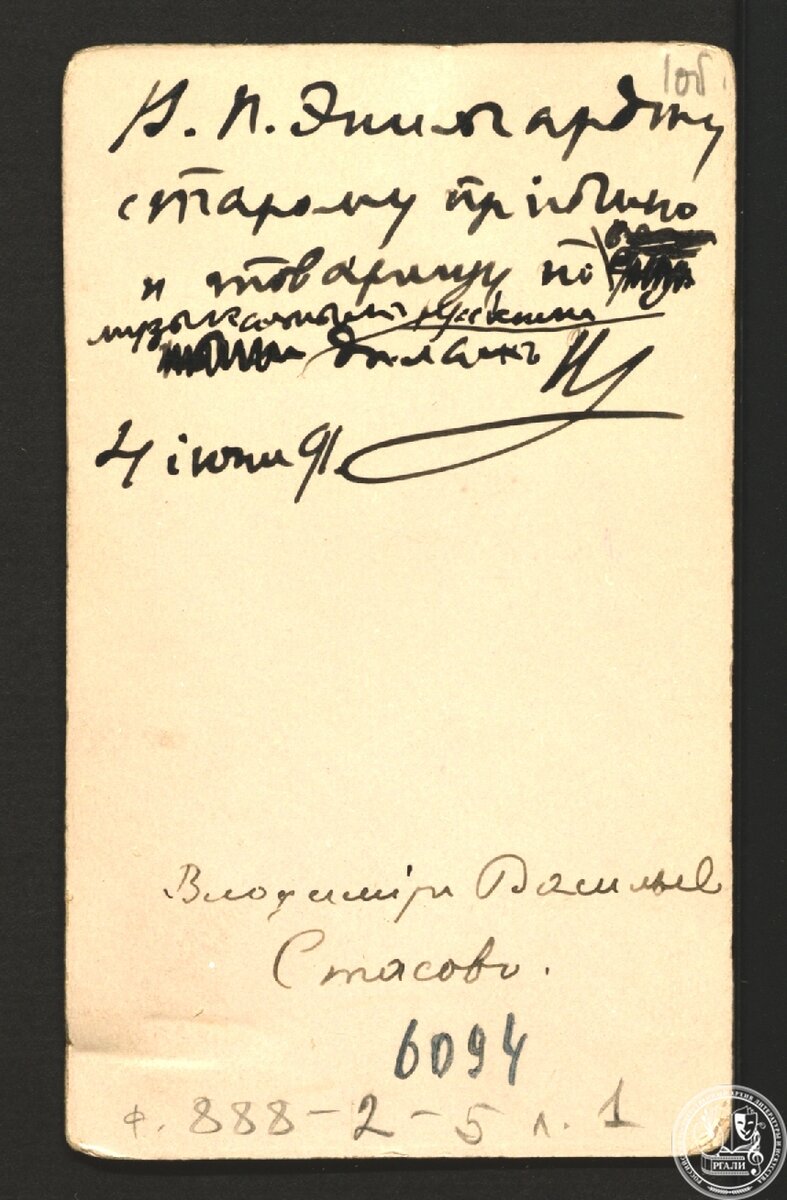 1 об.
Н. П. Энгельгардту
старому пріятелю
и товарищу по
музыкальнымъ русскимъ
дѣламъ
4 іюня 91.
Владиміръ Васильев
Стасовъ.
6094
ф. 888-2-5 л. 1
РГАЛИ